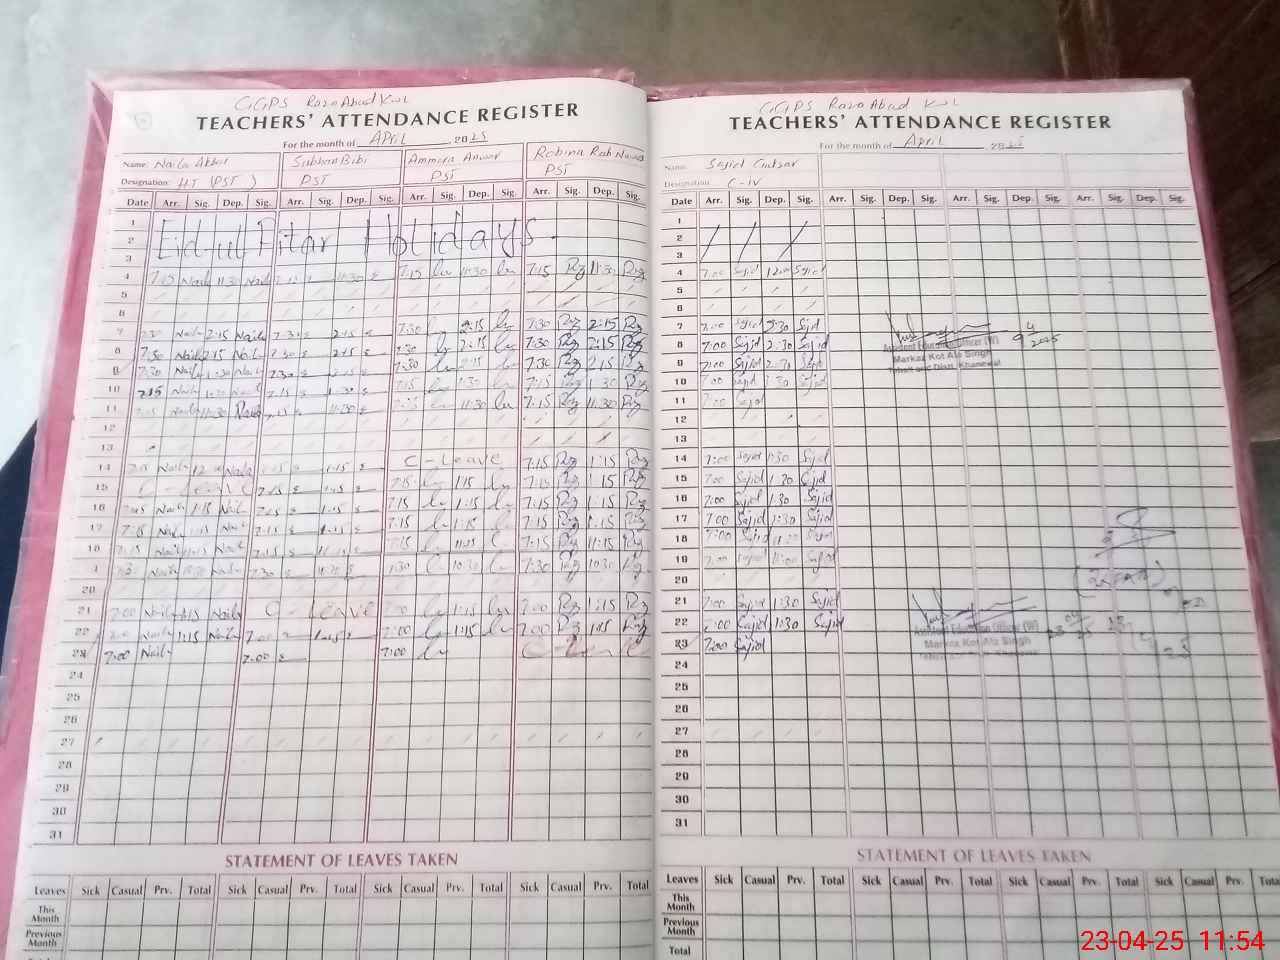 GGPS Raza Abad Kwl
TEACHERS' ATTENDANCE REGISTER
For the month of April, 2025
Name: Naila Akbar Sultan Bibi Ammara Anwar Robina Rab Nawaz
Designation: HT (PST) PST PST PST
Date Arr. Sig. Dep. Sig. Arr. Sig. Dep. Sig. Arr. Sig. Dep. Sig. Arr. Sig. Dep. Sig.
1
2 Eid-ul Fitar Holidays
3
4 7:15 Naila 11:30 Naila 7:15 11:30 7:15 11:30 7:15 11:30
5
6
7 7:30 Naila 2:15 Naila 7:30 2:15 7:30 2:15 7:30 2:15
8 7:30 Naila 2:15 Naila 7:30 2:15 7:30 2:15 7:30 2:15
9 7:30 Naila 1:30 Naila 7:30 2:15 7:30 2:15 7:30 2:15
10 7:15 Naila 1:30 Naila 7:15 1:30 7:15 1:30 7:15 1:30
11 7:15 Naila 11:30 7:15 11:30 7:15 11:30 7:15 11:30
12
13
14 7:15 Naila Naila 7:15 1:15 C-Leave 7:15 1:15
15 C-Leave 7:15 1:15 7:15 1:15 7:15 1:15
16 7:15 Naila 1:15 Naila 7:15 1:15 7:15 1:15 7:15 1:15
17 7:15 Naila 1:15 Naila 7:15 1:15 7:15 1:15 7:15 1:15
18 7:15 Naila 11:15 Naila 7:15 11:15 7:15 11:15 7:15 11:15
7:30 Naila 10:30 Naila 7:30 10:30 7:30 10:30 7:30 10:30
20
21 7:00 Naila 1:15 Naila C-Leave 7:00 1:15 7:00 1:15
22 7:00 Naila 1:15 Naila 7:00 1:15 7:00 1:15 7:00 1:15
23 7:00 Naila 7:00 7:00
24
25
26
27
28
29
30
31
STATEMENT OF LEAVES TAKEN
Leaves Sick Casual Prv. Total Sick Casual Prv. Total Sick Casual Prv. Total Sick Casual Prv. Total
This Month
Previous Month
Total
GGPS Raza Abad Kwl
TEACHERS' ATTENDANCE REGISTER
For the month of April 2025
Name: Sajid Gulzar
Designation C-iv
Date Arr. Sig. Dep. Sig. Arr. Sig. Dep. Sig. Arr. Sig. Dep. Sig. Arr. Sig. Dep. Sig.
1
2
3
4 7:00 Sajid 12:00 Sajid
5
6
7 7:00 Sajid 2:30 Sajid
8 7:00 Sajid 2:30 Sajid
Assistant Education Officer (W)
Markaz Kot Ala Singh
Tehsil and Distt. Khanewal
9 4 2025
9 7:00 Sajid 2:30 Sajid
10 7:00 Sajid 1:30 Sajid
11 7:00 Sajid
12
13
14 7:00 Sajid 1:30 Sajid
15 7:00 Sajid 1:30 Sajid
16 7:00 Sajid 1:30 Sajid
17 7:00 Sajid 1:30 Sajid
18 7:00 Sajid 11:00 Sajid
19 7:00 Sajid 11:00 Sajid
20
21 7:00 Sajid 1:30 Sajid
22 7:00 Sajid 1:30 Sajid
Assistant Education Officer (W)
Markaz Kot Ala Singh
23 7:00 Sajid
24
25
26
27
28
29
30
31
STATEMENT OF LEAVES TAKEN
Leaves Sick Casual Prv. Total Sick Casual Prv. Total Sick Casual Prv. Total Sick Casual Prv. Total
This Month
Previous Month
Total
23-04-25 11:54